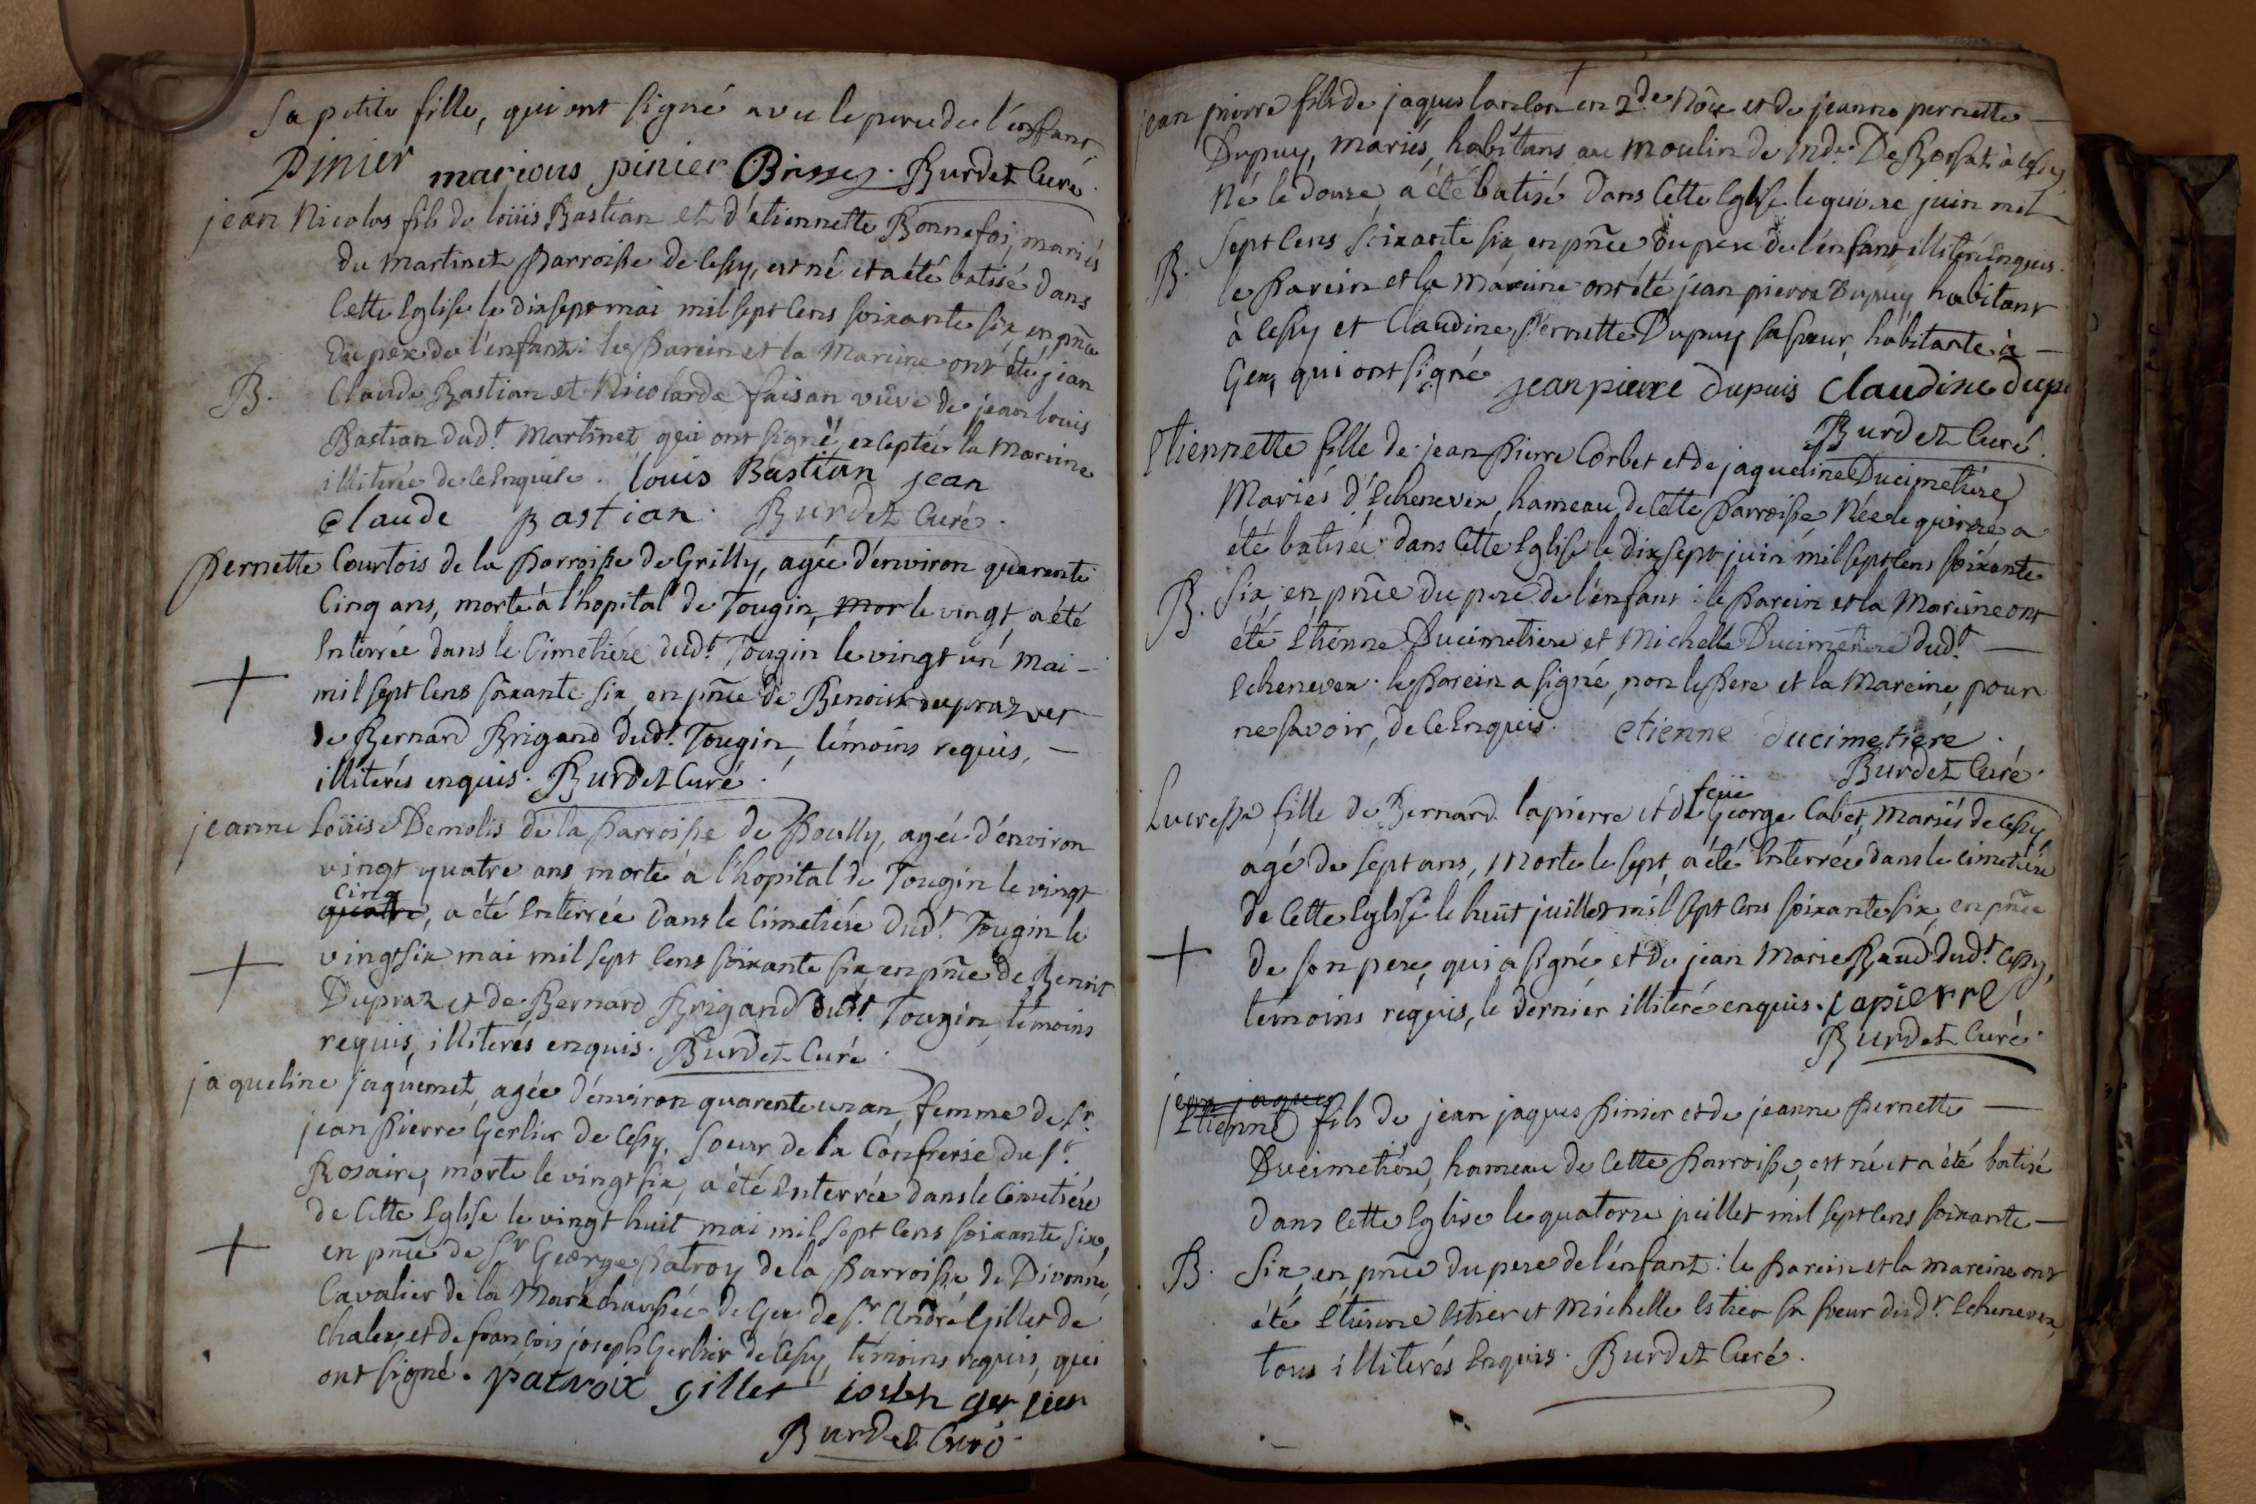 sa petite fille, qui ont signé avec le pere de l'enfant.
Pinier marious pinier Brissez. Burdet Curé.
jean Nicolas fils de loüis Bastian et d'étiennette Bonnefoi, mariés
du martinet parroisse de Cessy, est né et a été batisé dans
Cette Eglise le dixsept mai mil sept Cens soixante six, en pñce
du pere de l'enfant: le parein et la Mareine ont été jean
B. Claude Bastian et Nicolarde faisan vüve de jean louis
Bastian dudt. Martinet qui ont signé exceptée la Mareine
illiterée de ce Enquise. louis Bastian jean
Claude Bastian. Burdet Curé.
pernette Courtois de la parroisse de Grilly, agée d'environ quarente
Cinq ans, morte à l'hopital de Tougin, mor le vingt, a été
Enterrée dans le Cimetiére dudt. Tougin le vingt un mai -
mil sept Cens soixante six, en pñce de Benoist dupraz et
de Bernard Brigand dudt. Tougin, témoins requis, —
illiterés enquis. Burdet Curé.
jeanne Loüise Demolis de la parroisse de Poully, agée d'environ
vingt quatre ans morte à l'hopital de Tougin le vingt
cinq
quatre, a été Enterrée dans le Cimetiére dudt. Tougin le
vingtsix mai mil sept Cens soixante six, en pñce de Benoit
Dupraz et de Bernard Brigand dudt. Tougin, temoins
requis, illiterés enquis. Burdet Curé.
jaqueline jaquemet, agée d'environ quarente un an, femme de Sr.
jean Pierre Gerlier de Cessy, Soeur de la Confrerie du St.
Rosaire, morte le vingt six, a été Enterrée dans le Cimetiére
de Cette Eglise le vingt huit mai mil sept Cens soixante six,
en pñce de Sr George patroy de la parroisse de Divonne,
Cavalier de la Maréchaussée de Gex de Sr. André Gillet de
Chalex et de françois joseph Gerlier de Cessy, témoins requis, qui
ont signé. patroix gillet ioseph gerlier
Burdet Curé.
jean pierre fils de jaques lanlon en 2de. Nôce et de jeanne pernette —
Dupuy, mariés, habitans au moulin de Mdr. De Borsat à Cessy
Né le douze, a été batisé dans Cette Eglise le quinze juin mil
sept Cens soixante six, en pñce du pere de l'enfant illiteré Enquis.
B. le Parein et la Mareine ont été jean pierre Dupuy habitant
à Cessy et Claudine Pernette Dupuy sa soeur, habitante à —
Gex, qui ont signé jean pierre dupuis Claudine dupu
Burdet Curé.
Etiennette fille de jean Pierre Corbet et de jaqueline Ducimetiere,
Mariés d'Echenevex, hameau de Cette Parroisse Née le quinze a
été batisée dans Cette Eglise le dix sept juin mil sept Cens soixante
B. six, en pñce du pere de l'enfant: le Parein et la Mareine ont
été Etienne Ducimetiere et Michelle Ducimetiere dudt. —
Echenevex. le Parein a signé, non le Pere et la Mareine, pour
ne savoir, de ce Enquis. etienne ducimetiere.
Burdet Curé.
feüe
Lucresse fille de Bernard lapierre et de George Cabet, Mariés de Cessy
agé de sept ans, Morte le sept, a été Enterrée dans le cimetiére
de Cette Eglise le huit juillet mil sept Cens soixante six, en pñce
de son pere, qui a signé et de jean Marie Baud dudt. Cessy,
témoins requis, le dernier illiteré enquis. Lapierre
Burdet Curé.
jean jaques
Etienne fils de jean jaques Pinier et de jeanne Pernette —
Ducimetiére, hameau de Cette Parroisse, est né et a été batisé
dans Cette Eglise le quatorze juillet mil sept Cens soixante —
B. Six, en pñce du pere de l'énfant: le Parein et la mareine ont
été Etienne Estier et Michelle Estier sa soeur dudt. Echenevex,
tous illiterés Enquis. Burdet Curé.